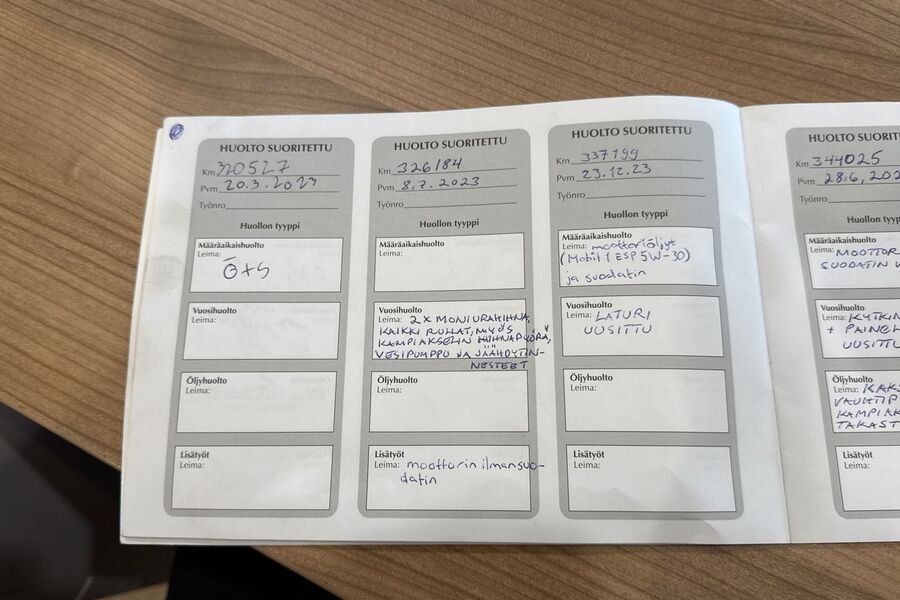 HUOLTO SUORITETTU
Km 320527
Pvm 20.3.2023
Työnro
Huollon tyyppi
Määräaikaishuolto
Leima:
Ö+S
Vuosihuolto
Leima:
Öljyhuolto
Leima:
Lisätyöt
Leima:
HUOLTO SUORITETTU
Km 326184
Pvm 8.7.2023
Työnro
Huollon tyyppi
Määräaikaishuolto
Leima:
Vuosihuolto
Leima: 2x MONIURAHIHNA,
KAIKKI RULLAT, MYÖS
KAMPIAKSELIN HIHNAPYÖRÄ,
VESIPUMPPU JA JÄÄHDYTIN-
NESTEET
Öljyhuolto
Leima:
Lisätyöt
Leima: moottorin ilmansuo-
datin
HUOLTO SUORITETTU
Km 337199
Pvm 23.12.23
Työnro
Huollon tyyppi
Määräaikaishuolto
Leima: moottoriöljyt
(Mobil 1 ESP 5W-30)
ja suodatin
Vuosihuolto
Leima: LATURI
UUSITTU
Öljyhuolto
Leima:
Lisätyöt
Leima:
HUOLTO SUORIT
Km 344025
Pvm 28.6.202
Työnro
Huollon tyyppi
Määräaikaishuolto
Leima: MOOTTOR
SUODATIN V
Vuosihuolto
Leima: KYTKIN
+ PAINEL
UUSITTU
Öljyhuolto
Leima: KAKS
VAUHTIP
KAMPIAK
TAKAST
Lisätyöt
Leima: